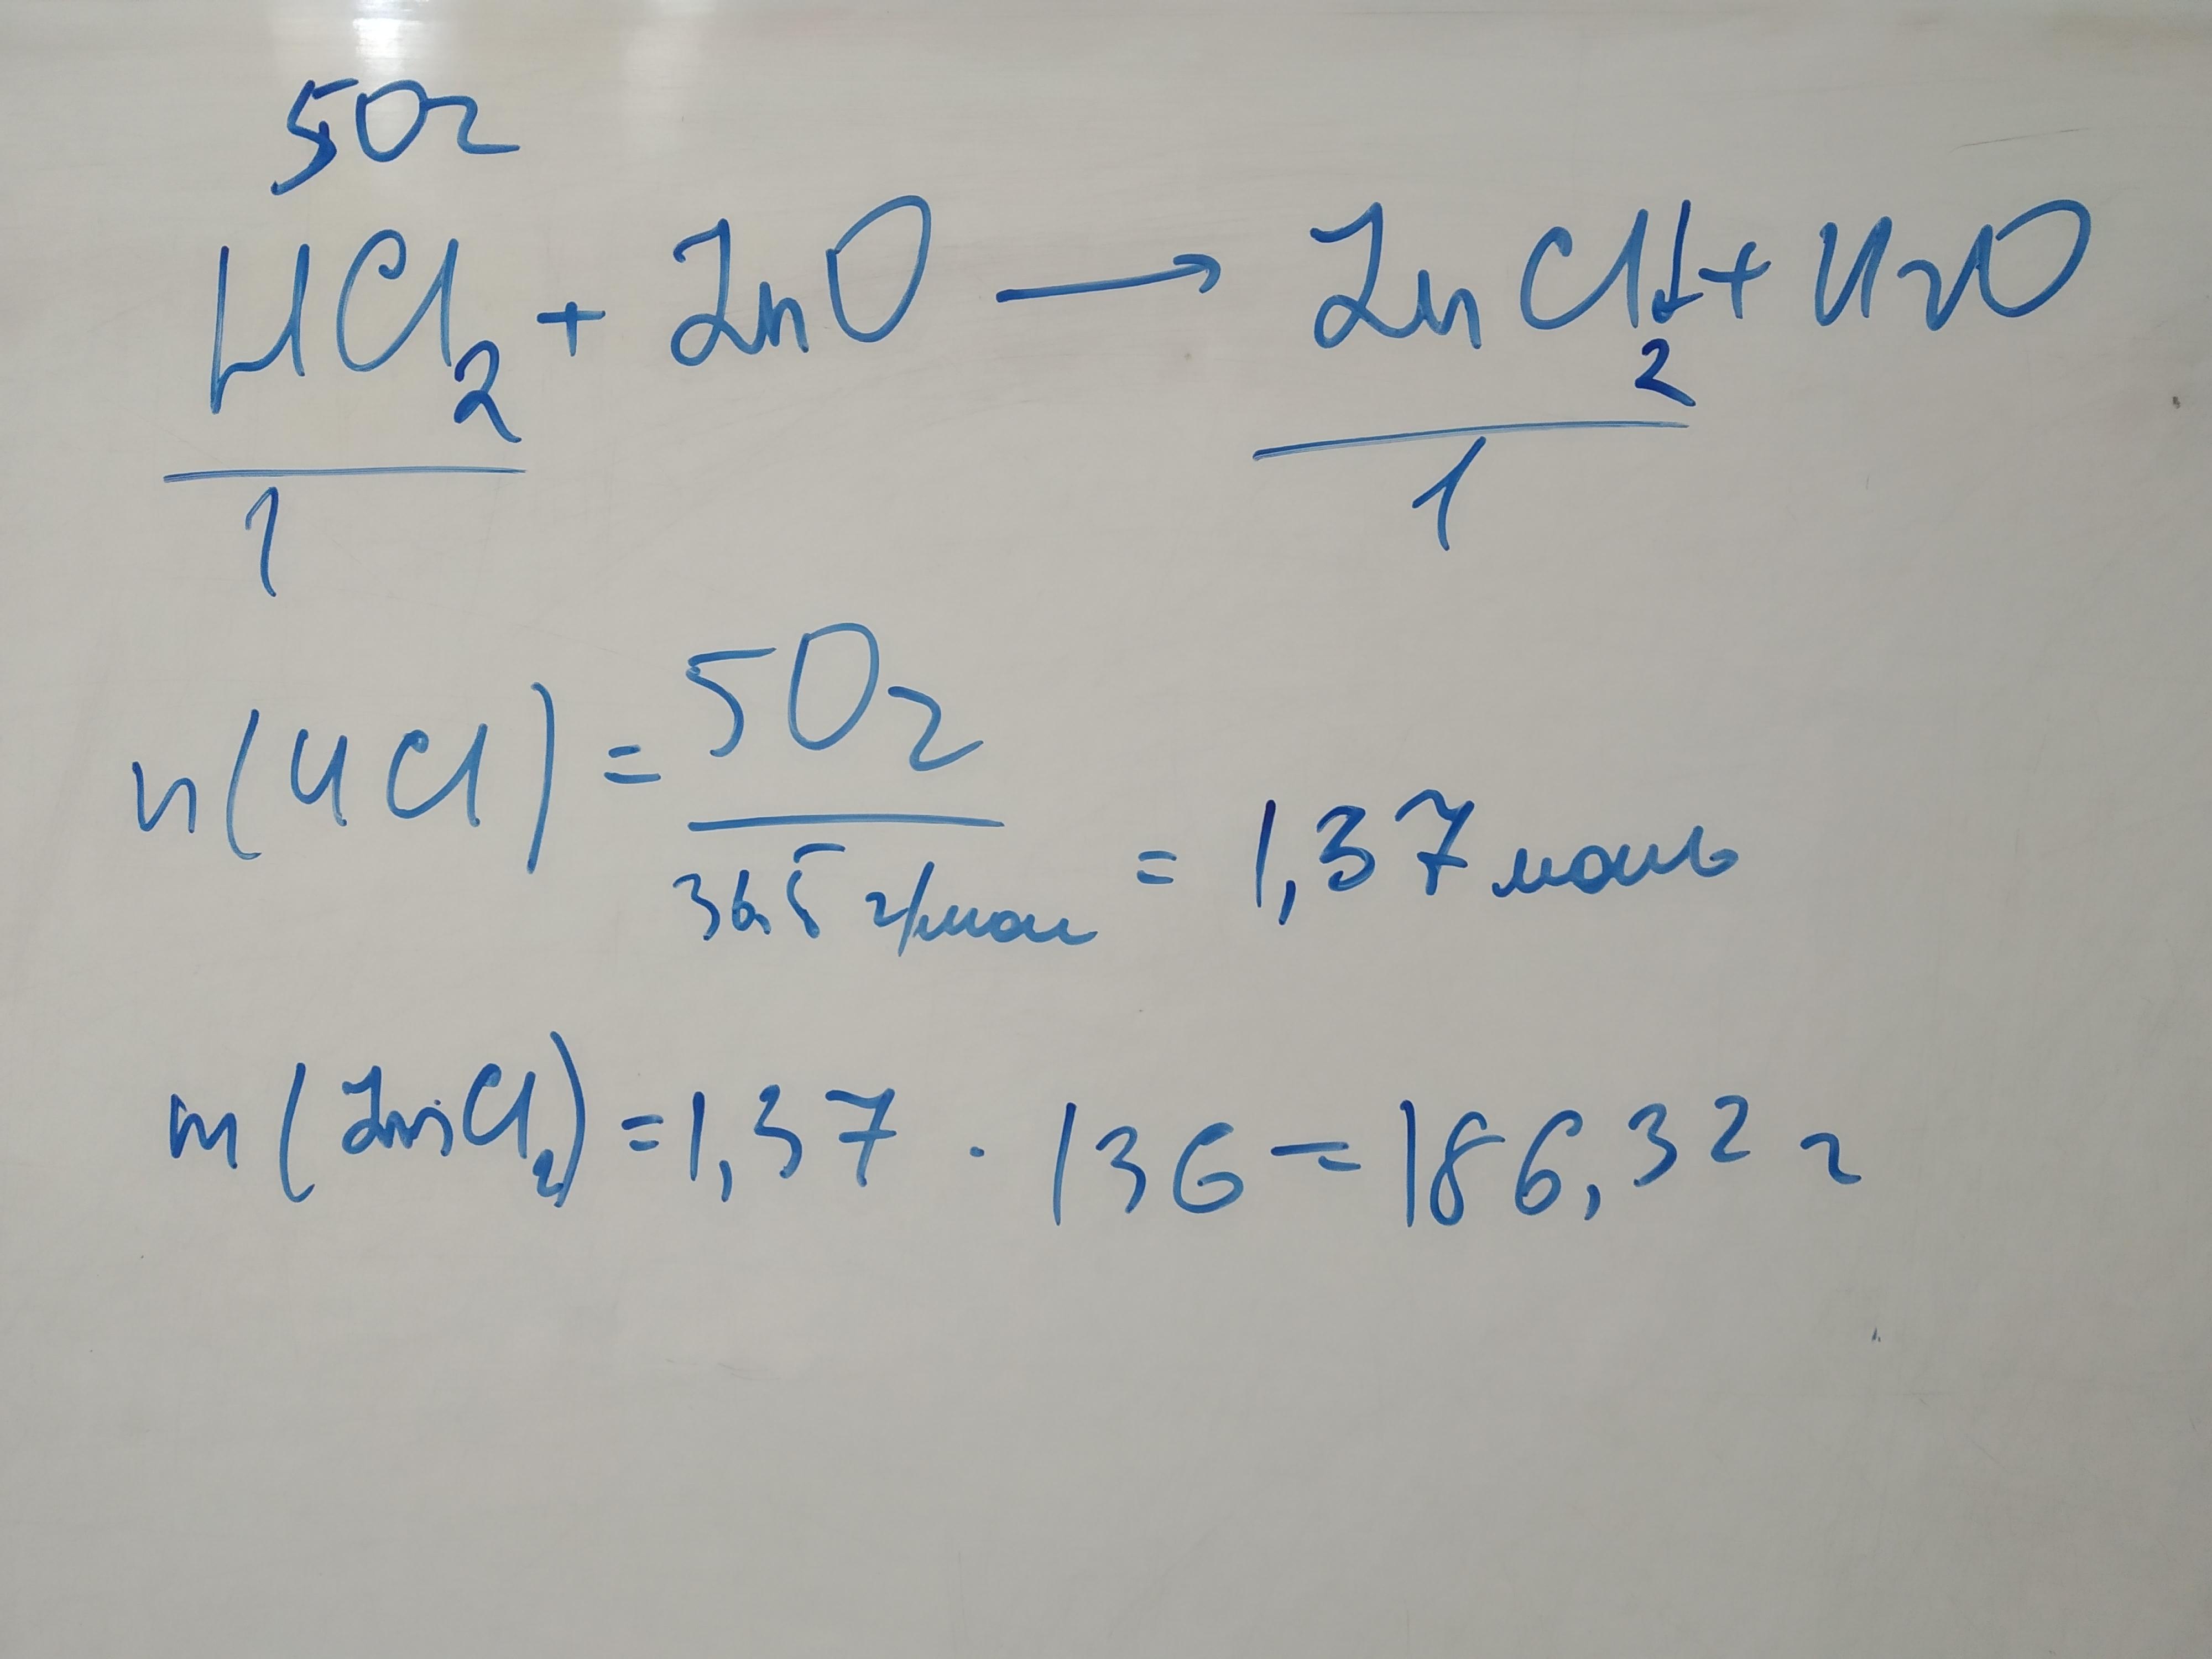 50г
HCl₂ + ZnO → ZnCl₂↓ + H₂O
1 1
n(HCl) = 50г / 36,5 г/мол = 1,37 моль
m(ZnCl₂) = 1,37 · 136 = 186,32 г